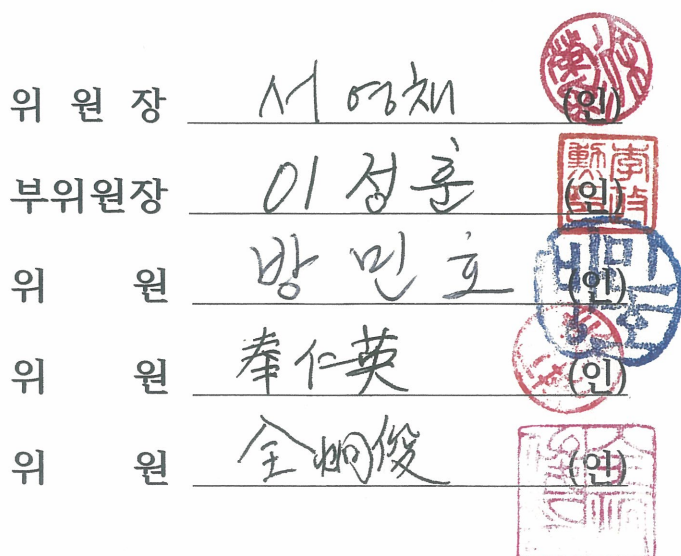 위 원 장 서영채 (인)
부위원장 이성훈 (인)
위 원 방민호 (인)
위 원 奉仁英 (인)
위 원 全炯俊 (인)